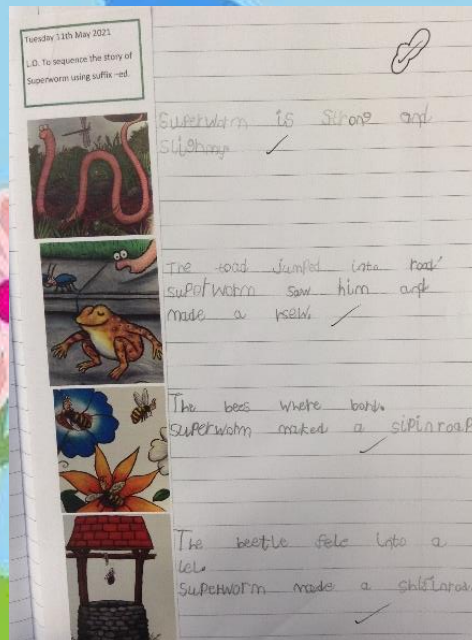 Tuesday 11th May 2021
L.O. To sequence the story of
Superworm using suffix –ed.
Superworm is strong and
The toad jumped into road
superworm saw him and
made a
The bees where bord.
superworm maked a sipinroap
The beetle fele into a
lel.
Superworm made a